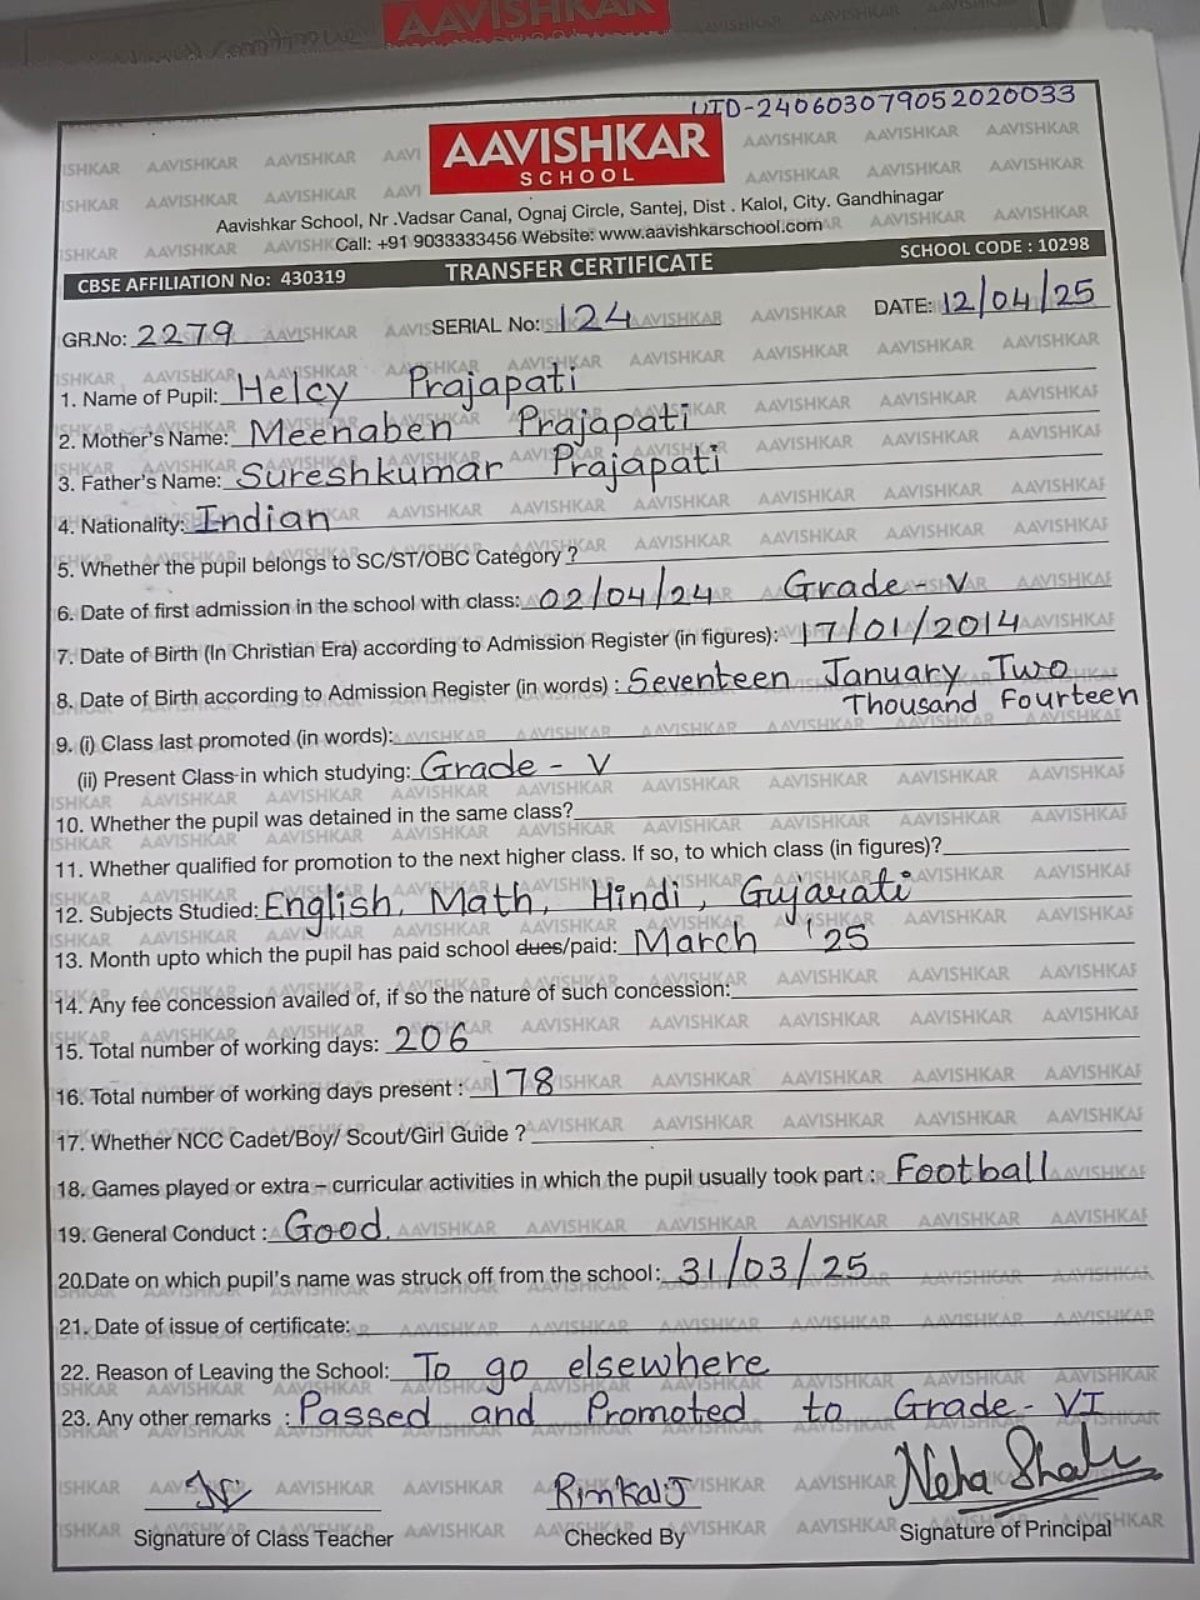 AAVISHKAR
UID-240603079052020033
AAVISHKAR
SCHOOL
Aavishkar School, Nr .Vadsar Canal, Ognaj Circle, Santej, Dist . Kalol, City. Gandhinagar
Call: +91 9033333456 Website: www.aavishkarschool.com
CBSE AFFILIATION No: 430319 TRANSFER CERTIFICATE SCHOOL CODE : 10298
GR.No: 2279 SERIAL No: 124 DATE: 12/04/25
1. Name of Pupil: Helcy Prajapati
2. Mother's Name: Meenaben Prajapati
3. Father's Name: Sureshkumar Prajapati
4. Nationality: Indian
5. Whether the pupil belongs to SC/ST/OBC Category ?
6. Date of first admission in the school with class: 02/04/24 Grade - V
7. Date of Birth (In Christian Era) according to Admission Register (in figures): 17/01/2014
8. Date of Birth according to Admission Register (in words) : Seventeen January Two
Thousand Fourteen
9. (i) Class last promoted (in words):
(ii) Present Class in which studying: Grade - V
10. Whether the pupil was detained in the same class?
11. Whether qualified for promotion to the next higher class. If so, to which class (in figures)?
12. Subjects Studied: English, Math, Hindi, Gujarati
13. Month upto which the pupil has paid school dues/paid: March '25
14. Any fee concession availed of, if so the nature of such concession:
15. Total number of working days: 206
16. Total number of working days present : 178
17. Whether NCC Cadet/Boy/ Scout/Girl Guide ?
18. Games played or extra – curricular activities in which the pupil usually took part : Football
19. General Conduct : Good.
20.Date on which pupil's name was struck off from the school: 31/03/25
21. Date of issue of certificate:
22. Reason of Leaving the School: To go elsewhere
23. Any other remarks : Passed and Promoted to Grade - VI
Rinkal J Neha Shah
Signature of Class Teacher Checked By Signature of Principal